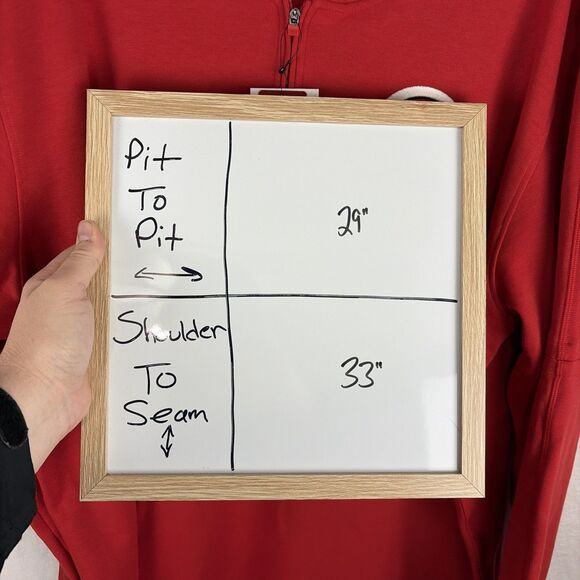 Pit
To
Pit
29"
Shoulder
To
Seam
33"